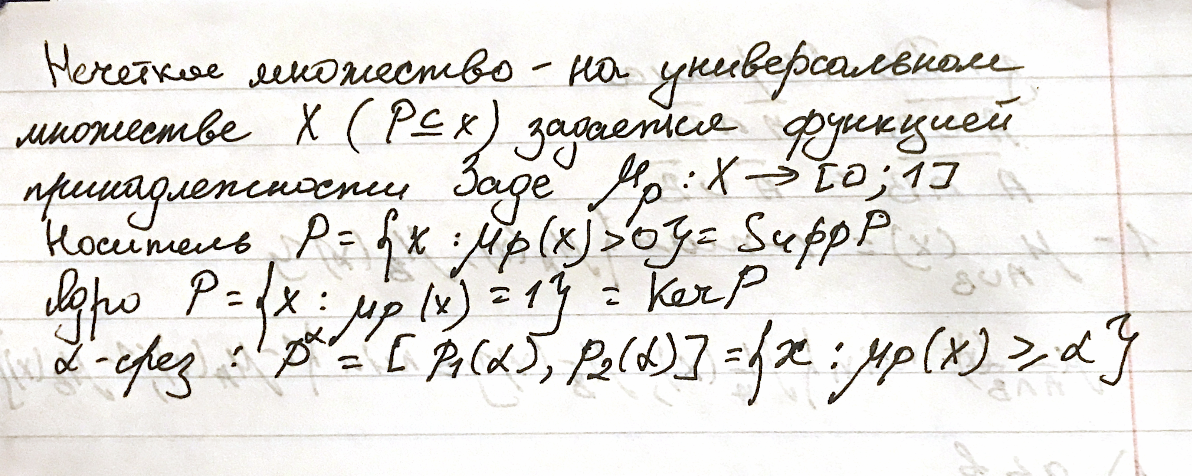 Нечёткое множество - на универсальном
множестве X ( P ⊆ x ) задается функцией
принадлежности Заде μ_P : X → [0; 1]
Носитель P = {x : μp(x) > 0} = Supp P
Ядро P = {x : μp(x) = 1} = Ker P
α-срез : P^α = [P₁(α), P₂(α)] = {x : μp(x) ≥ α}